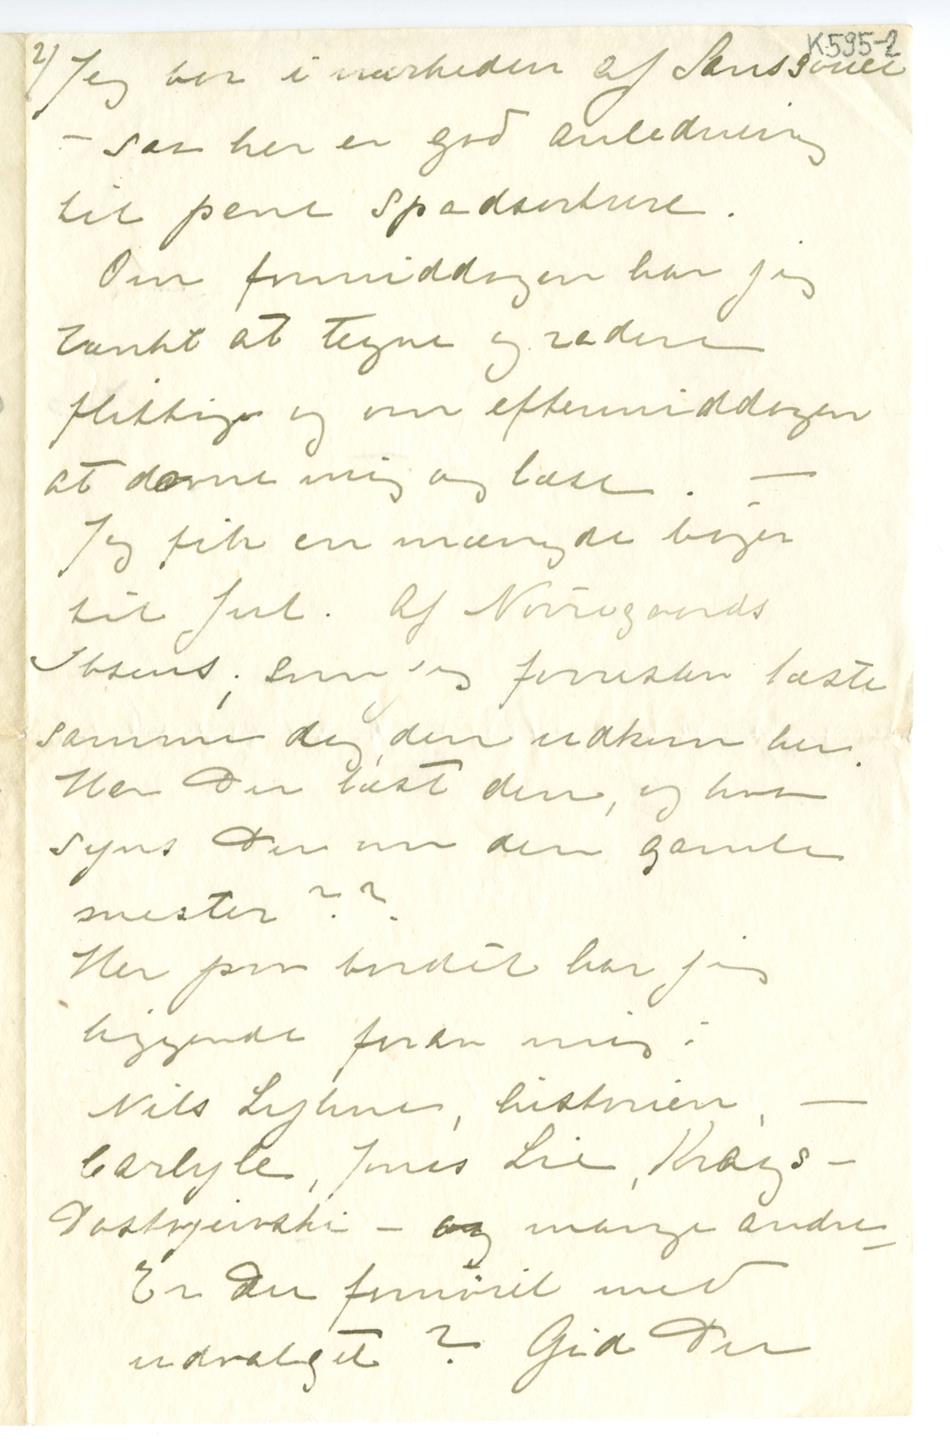 K595-2
2) Jeg bor i nærheden af Sanssouci
– saa her er god anledning
til pene spadserture.
Om formiddagen har jeg
tænkt at tegne og radere
flittig og om eftermiddagen
at dovne mig og læse. –
Jeg fik en mængde bøger
til Jul. Af Nörregaards
Ibsens, som jeg forresten læste
samme dag den udkom her.
Har Du læst den, og hva
syns Du om den gamle
mester??
Her paa bordet har jeg
liggende foran mig:
Nils Lyhne, historien, –
Carlyle, Jonas Lie, Krags –
Dostojewski – og mange andre –
Er Du fornöiet med
udvalget? Gid Du